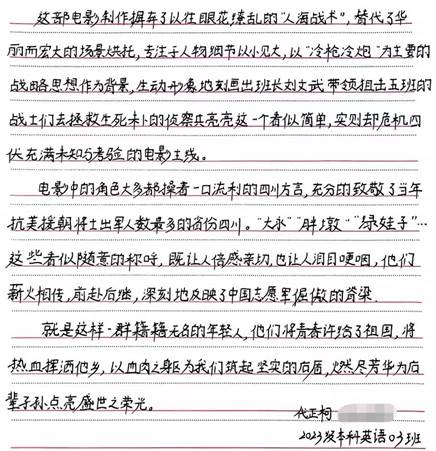 这部电影制作摒弃了以往眼花缭乱的“人海战术”，替代了华
丽而宏大的场景烘托，专注于人物细节以小见大，以“冷枪冷炮”为主要的
战略思想作为背景，生动形象地刻画出班长刘文武带领狙击五班的
战士们去拯救生死未卜的侦察兵亮亮这一个看似简单，实则却危机四
伏充满未知与考验的电影主线。
电影中的角色大多都操者一口流利的四川方言，充分的致敬了当年
抗美援朝将士出军人数最多的省份四川。“大永”“胖墩”“绿娃子”…
这些看似随意的称呼，既让人倍感亲切，也让人泪目哽咽，他们
薪火相传，前赴后继，深刻地反映了中国志愿军倔傲的脊梁.
就是这样一群籍籍无名的年轻人，他们将青春许给了祖国，将
热血挥洒他乡，以血肉之躯为我们筑起坚实的后盾，燃尽芳华为后
辈子孙点亮盛世之荣光。
代正柯
2023级本科英语03班